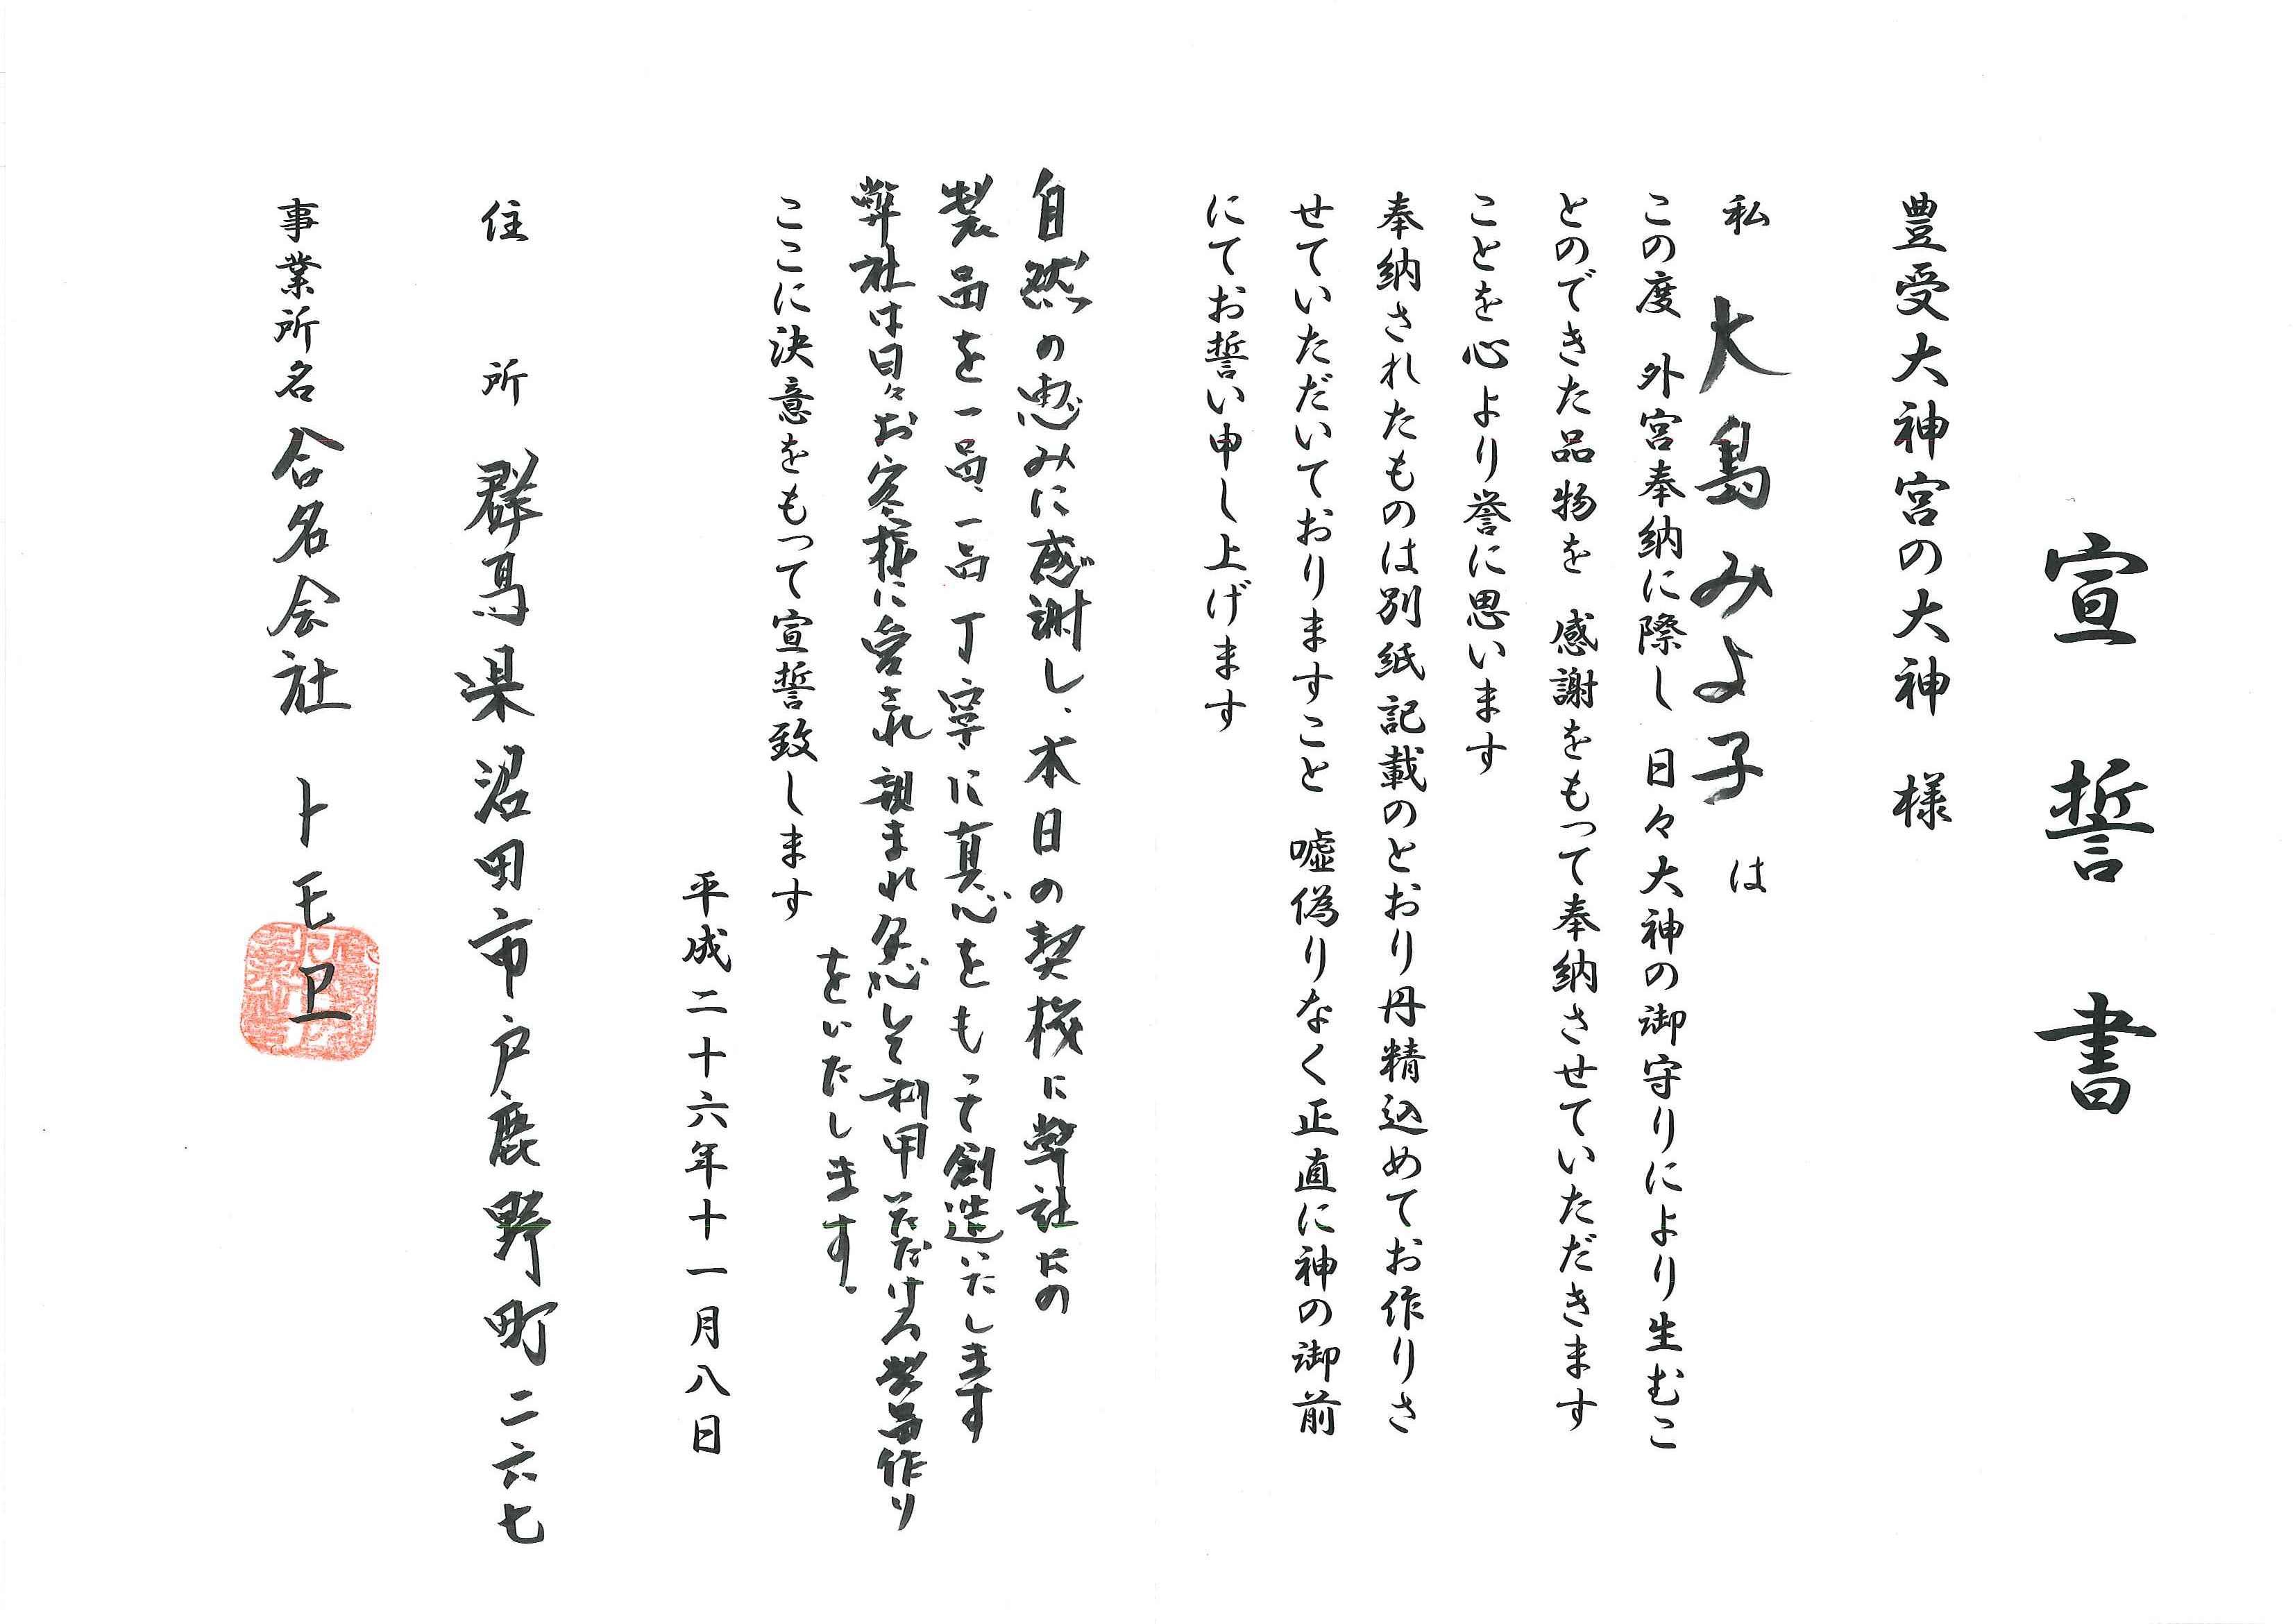 宣誓書
豊受大神宮の大神 様
私 大島みよ子 は
この度 外宮奉納に際し 日々大神の御守りにより生むこ
とのできた品物を 感謝をもって奉納させていただきます
ことを心より誉に思います
奉納されたものは別紙記載のとおり丹精込めてお作りさ
せていただいておりますこと 嘘偽りなく正直に神の御前
にてお誓い申し上げます
自然の恵みに感謝し、本日の契機に弊社の
製品を一品、一品丁寧に真心をもって創造いたします
弊社は日々お客様に愛され親まれ安心して利用いただける製品作り
をいたします。
ここに決意をもって宣誓致します
平成二十六年十一月八日
住所 群馬県沼田市戸鹿野町二六七
事業所名 合名会社 トモエ